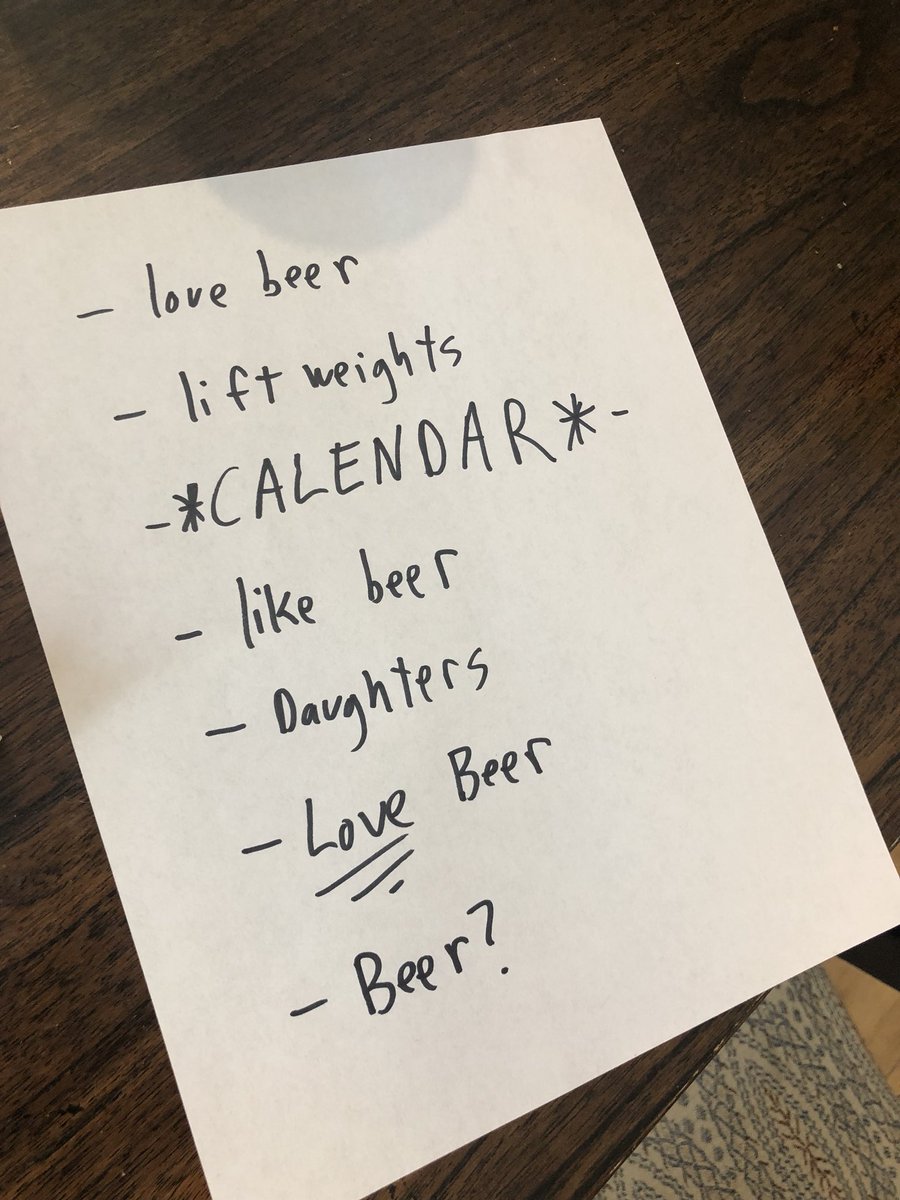 - love beer
- lift weights
-*CALENDAR*-
- like beer
- Daughters
- Love Beer
- Beer?